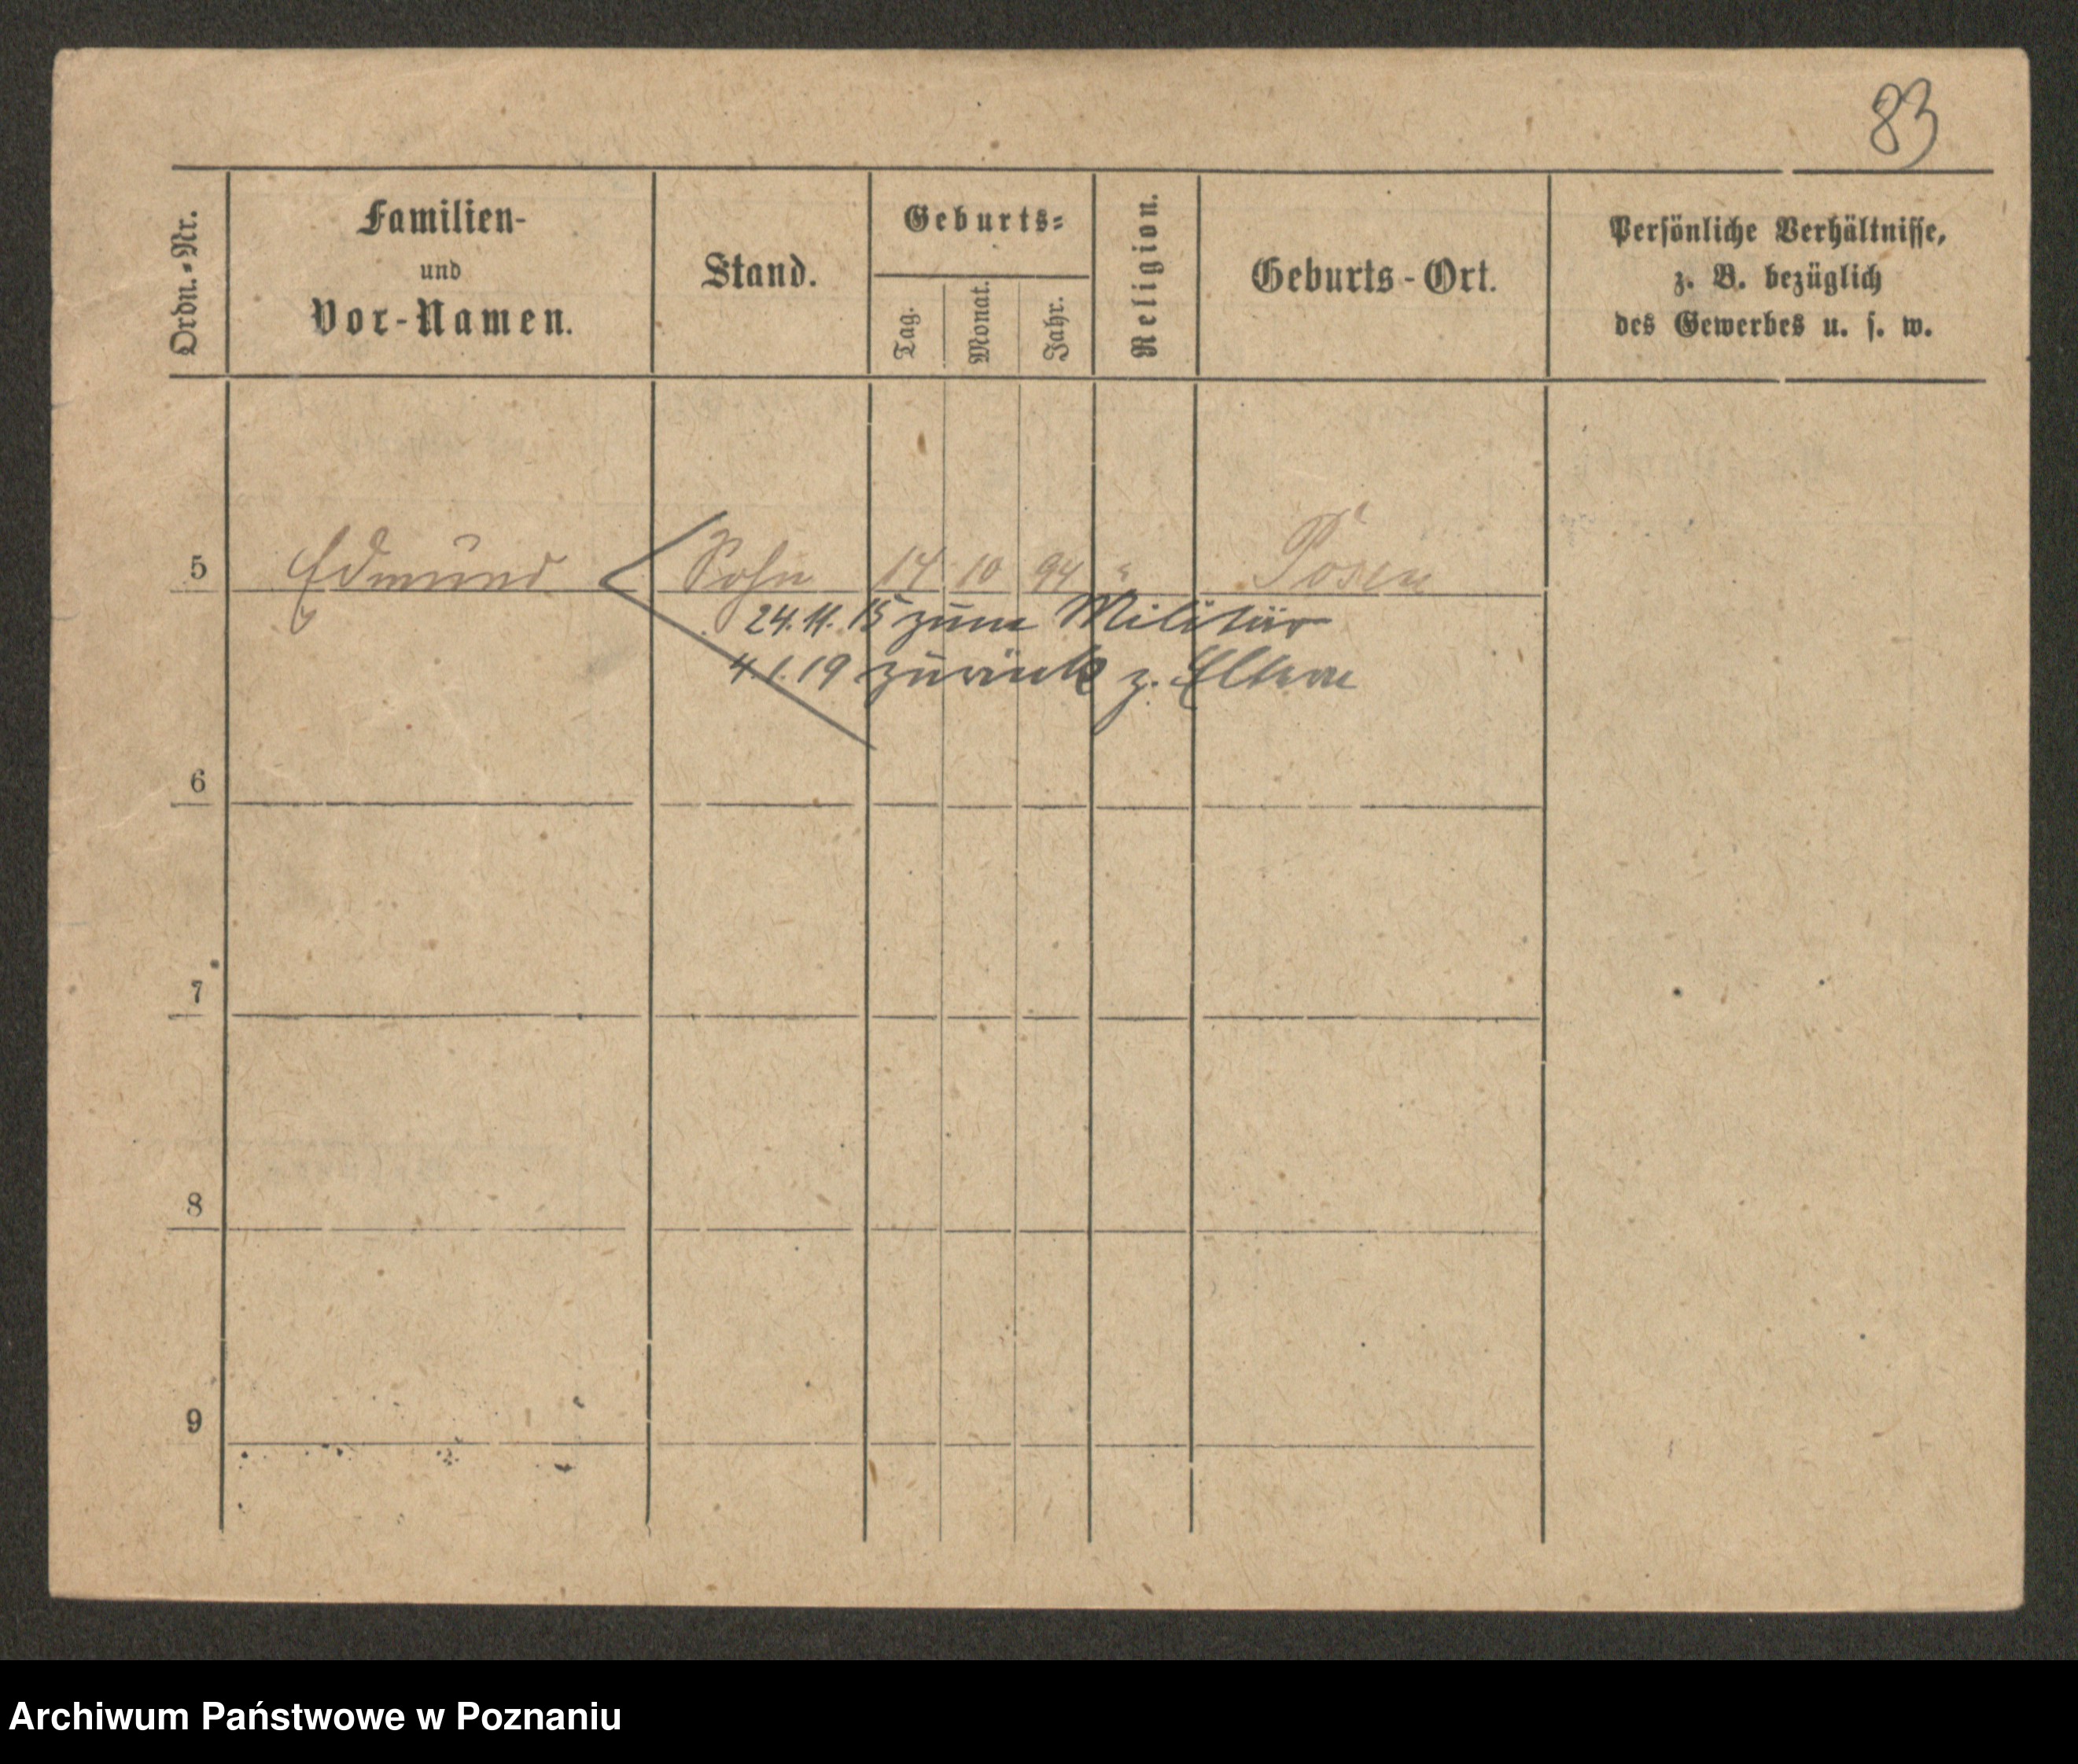 83
Ordn.-Nr.
Familien-
und
Vor-Namen.
Stand.
Geburts-
Tag.
Monat.
Jahr.
Religion.
Geburts-Ort.
Persönliche Verhältnisse,
z. B. bezüglich
des Gewerbes u. s. w.
5 Edmund Sohn 14 10 94 " Posen
24.11.15 zum Militär
4.1.19 zurück z. Eltern
6
7
8
9
Archiwum Państwowe w Poznaniu